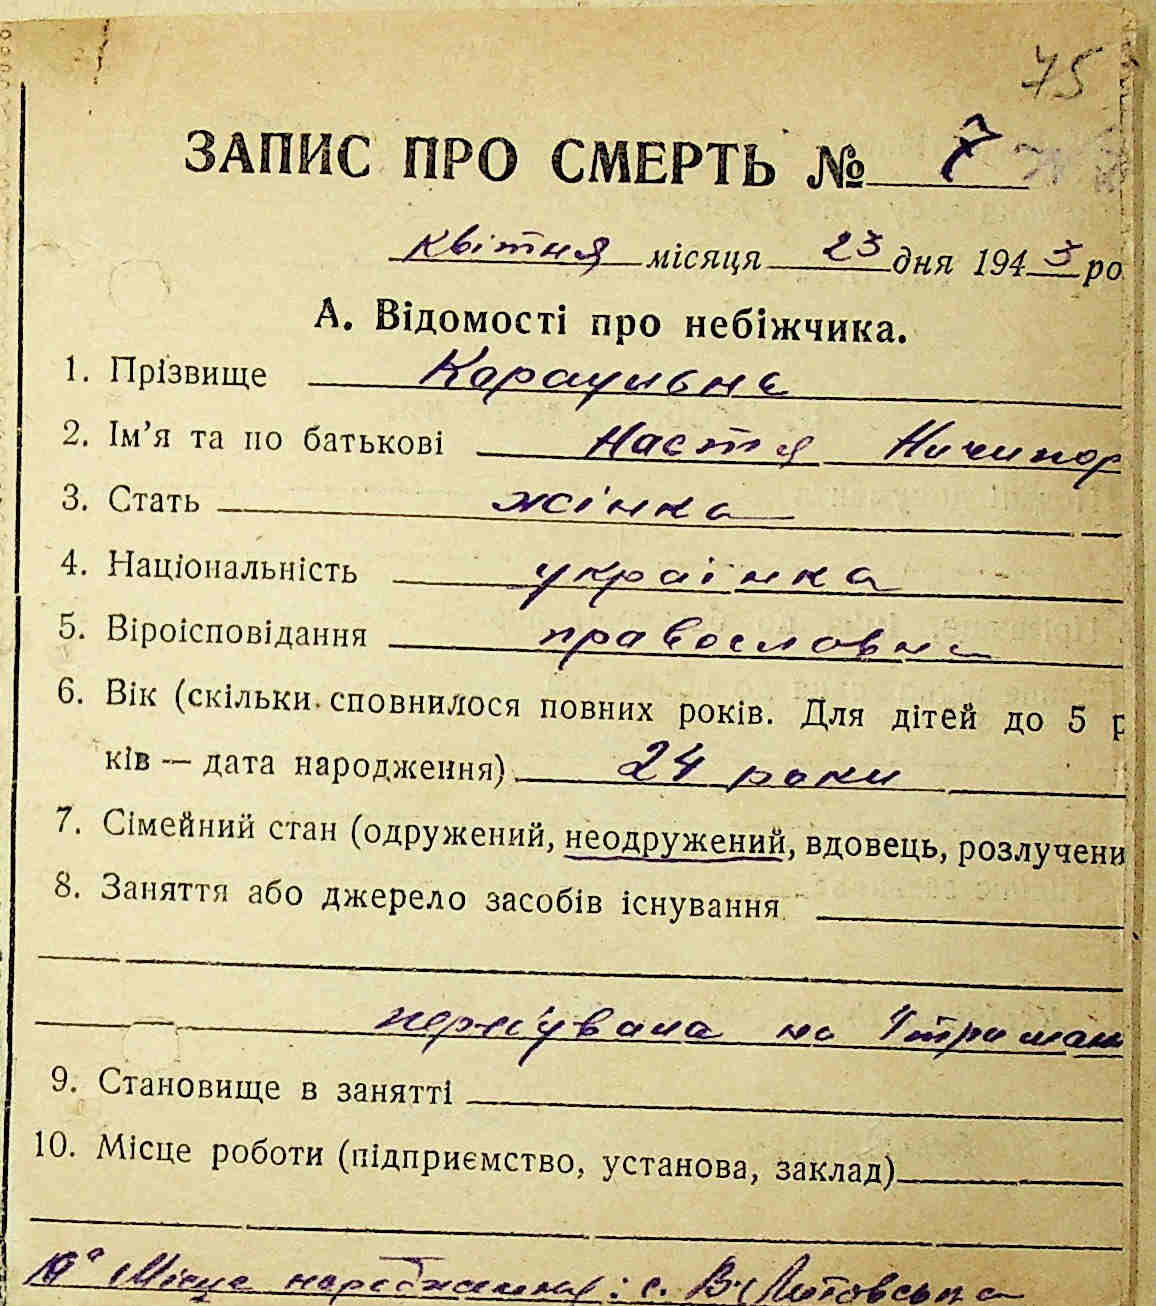 75
ЗАПИС ПРО СМЕРТЬ № 7
квітня місяця 23 дня 1943 ро
А. Відомості про небіжчика.
1. Прізвище
2. Ім’я та по батькові Настя Ничипор
3. Стать жінка
4. Національність українка
5. Віроісповідання православна
6. Вік (скільки сповнилося повних років. Для дітей до 5 р
ків — дата народження) 24 роки
7. Сімейний стан (одружений, неодружений, вдовець, розлучени
8. Заняття або джерело засобів існування
на утриман
9. Становище в занятті
10. Місце роботи (підприємство, установа, заклад)
10а Місце народження: с. В-Литовська